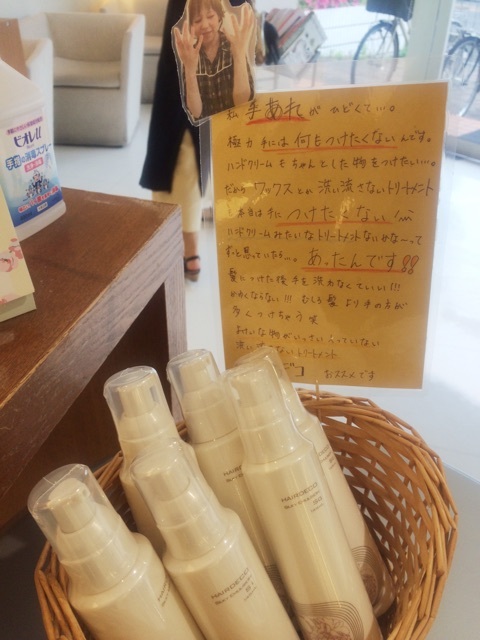 ビオレu
手指の消毒スプレー
私 手あれがひどくて…。
極力 手には 何もつけたくないんです。
ハンドクリームもちゃんとした物をつけたい…。
だから ワックスとか 洗い流さないトリートメント
も本当は手に つけたくない
ハンドクリームみたいなトリートメントないかな〜って
ずっと思っていたら…。 あったんです!!
髪につけた後手を洗わなくていい!!!
むしろ髪より手の方が
多くつけちゃう 笑
よけいな物がいっさい入っていない
洗い流さないトリートメント
オススメです
HAIRDECO
HAIRDECO
HAIRDECO